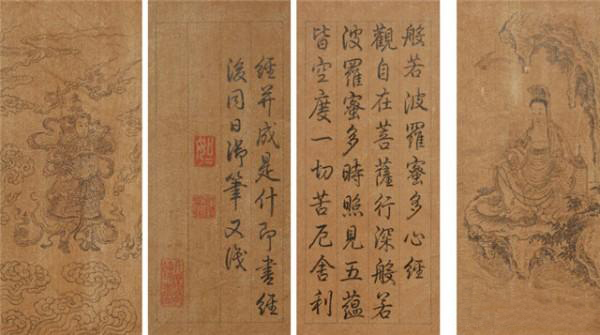 般若波羅蜜多心經
觀自在菩薩行深般若
波羅蜜多時照見五蘊
皆空度一切苦厄舍利
經并成是什即書經
後同日御筆又識